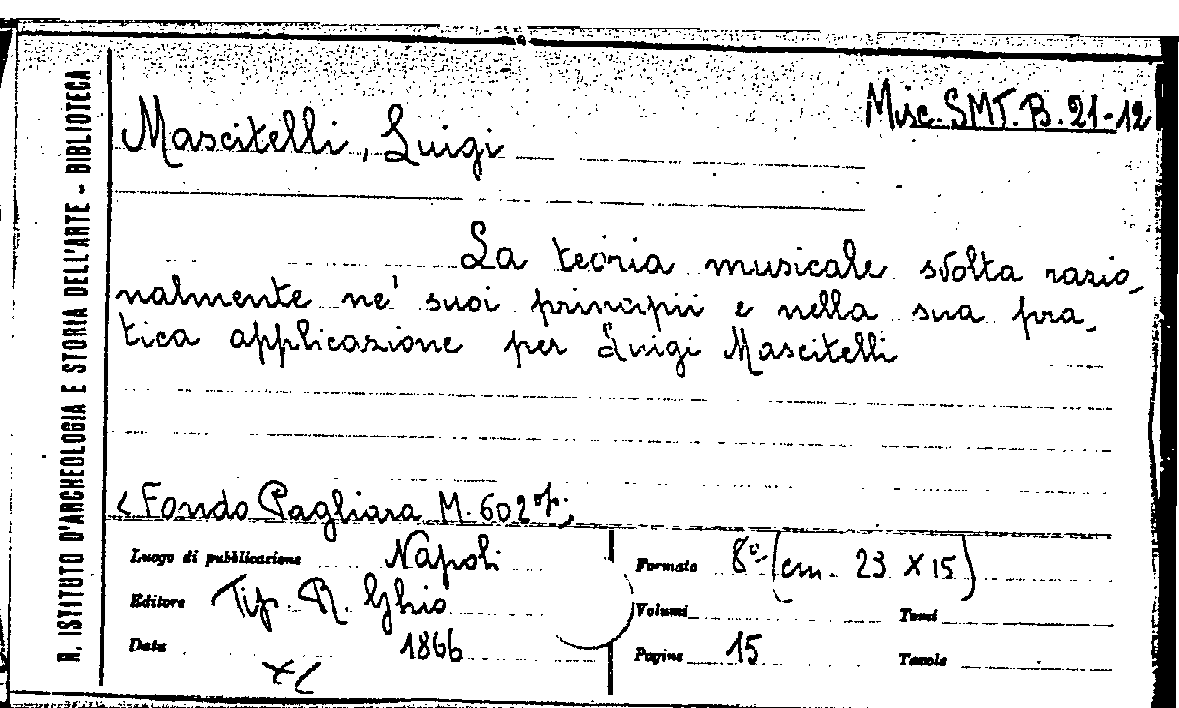 R. ISTITUTO D'ARCHEOLOGIA E STORIA DELL'ARTE - BIBLIOTECA
Misc. SMT. B. 21-12
Mascitelli, Luigi
La teoria musicale svolta razio,
nalmente ne' suoi principii e nella sua pra,
tica applicazione per Luigi Mascitelli
< Fondo Pagliara M. 602
Luogo di pubblicazione Napoli
Formato 8º (cm. 23 X 15)
Editore Tip. R. Ghio
Volumi Tomi
Data 1866
Pagine 15 Tavole